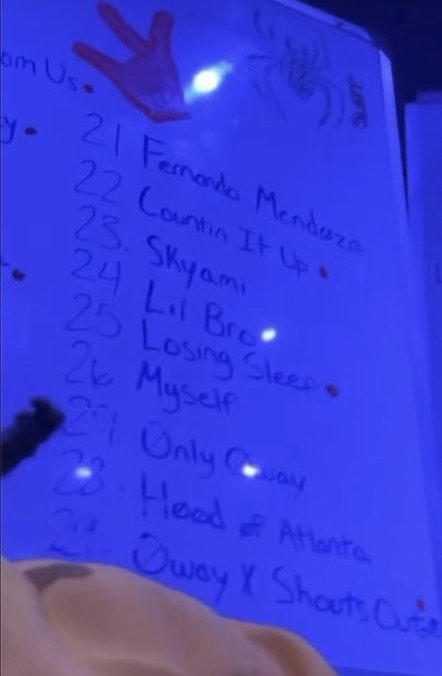 om Us.
y.
21 Fernando Mendoza
22 Countin It Up.
23. Skyami
24 Lil Bro
25. Losing Sleep.
26 Myself
27. Only Oway
28. Head of Atlanta
29. Oway X Shouts Outs